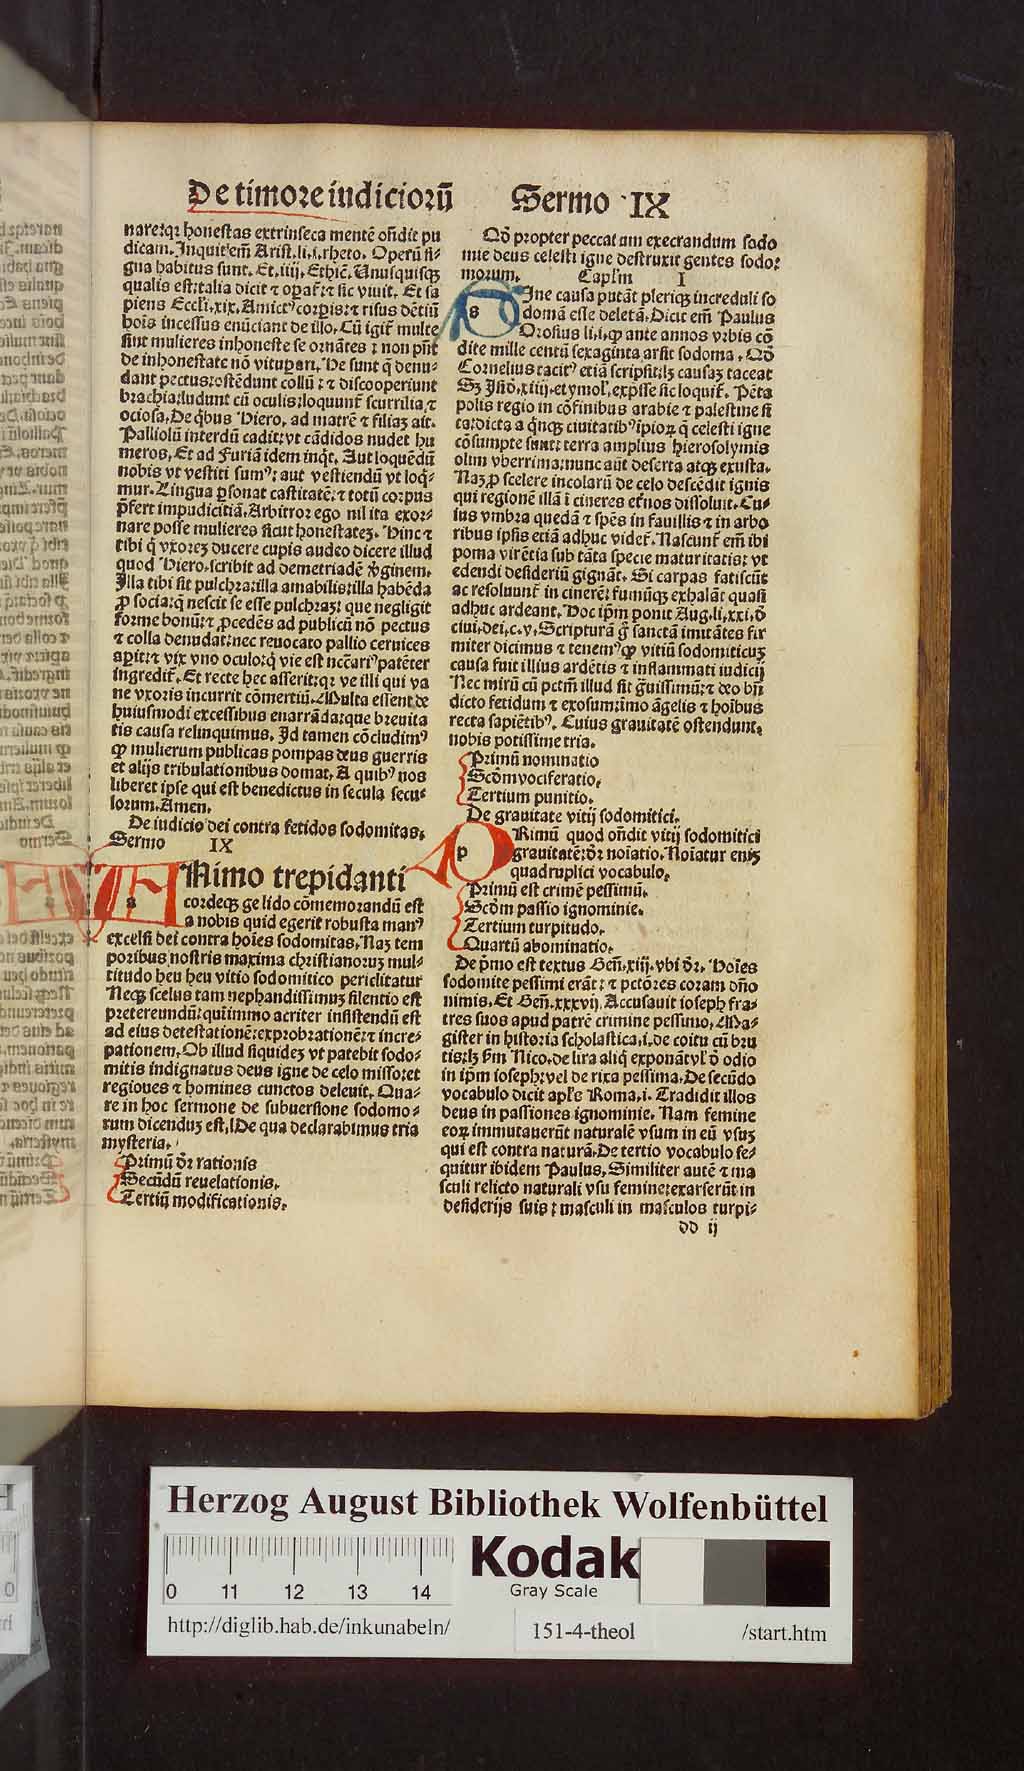 De timore iudiciorū Sermo IX
nare: qꝛ honestas extrinseca mentē oñdit pu
dicam. Inquit em̄ Arist. li. i. rheto. Operū si-
gna habitus sunt. Et. iiij. Ethic̄. Unusquisqꝫ
qualis est: talia dicit ⁊ oꝑat̄: ⁊ sic viuit. Et sa
piens Eccli. xix. Amictꝰ corpis: ⁊ risus dētiū
hoīs incessus enūciant de illo. Cū igit̄ multe
sint mulieres inhoneste se ornātes ⁊ non pn̄t
de inhonestate nō vituꝑari. He sunt q̄ denu-
dant pectus: ostēdunt collū: ⁊ discooperiunt
brachia: ludunt cū oculis: loquunt̄ scurrilia, ⁊
ociosa. De qͥbus Hiero. ad matrē ⁊ filiaꝫ ait.
Palliolū interdū cadit: vt cādidos nudet hu
meros. Et ad Furiā idem inqͥt. Aut loquēdū
nobis vt vestiti sumꝰ: aut vestiendū vt loqͥ-
mur. Lingua ꝑsonat castitatē: ⁊ totū corpus
p̄fert impudicitiā. Arbitror ego nil ita exor-
nare posse mulieres sicut honestateꝫ. Hinc ⁊
tibi qͥ vxoreꝫ ducere cupis audeo dicere illud
quod Hiero. scribit ad demetriadē v̓ginem.
Illa tibi sit pulchra: illa amabilis: illa habēda
ꝓ socia: q̄ nescit se esse pulchraꝫ: que negligit
forme bonū: ⁊ ꝓcedēs ad publicū nō pectus
⁊ colla denudat: nec reuocato pallio ceruices
aꝑit: ⁊ vix vno oculo: qͥ vie est nēc̄ariꝰ patēter
ingredit̄. Et recte hec asserit: qꝛ ve illi qui va
ne vxoris incurrit cōmertiū. Multa essent de
huiusmodi excessibus enarrāda: que breuita
tis causa relinquimus. Id tamen cōcludimꝰ
ꝙ mulierum publicas pompas deus guerris
et alijs tribulationibus domat. A quibꝰ nos
liberet ipse qui est benedictus in secula secu-
lorum. Amen.
De iudicio dei contra fetidos sodomitas.
Sermo IX
ANimo trepidanti
cordeqꝫ gelido cōmemorandū est
a nobis quid egerit robusta manꝰ
excelsi dei contra hoīes sodomitas. Naꝫ tem
poribus nostris maxima christianoruꝫ mul-
titudo heu heu vitio sodomitico periclitatur
Neqꝫ scelus tam nephandissimuꝫ silentio est
pretereundū: quiimmo acriter insistendū est
ad eius detestationē: exprobrationē: ⁊ incre-
pationem. Ob illud siquideꝫ vt patebit sodo-
mitis indignatus deus igne de celo misso: et
regiones ⁊ homines cunctos deleuit. Qua-
re in hoc sermone de subuersione sodomo-
rum dicenduꝫ est, De qua declarabimus tria
mysteria.
Primū dr̄ rationis
Secūdū reuelationis.
Tertiū modificationis.
Qō propter peccatum execrandum sodo
mie deus celesti igne destruxit gentes sodo-
morum. Caplm I
SIne causa putāt pleriqꝫ increduli so
domā esse deletā. Dicit em̄ Paulus
Orosius li. i. ꝙ ante annos vrbis cō
dite mille centū sexaginta arsit sodoma. Qō
Cornelius tacitꝰ etiā scripsit: lꝫ causaꝫ taceat
Sꝫ Isid. xiiij. etymol. exp̄sse sic loquit̄. Pēta
polis regio in cōfinibus arabie ⁊ palestine si
ta: dicta a qͥnqꝫ ciuitatibꝰ ipioꝝ q̄ celesti igne
cōsumpte sunt: terra amplius hierosolymis
olim vberrima: nunc aūt deserta atqꝫ exusta.
Naꝫ ꝓ scelere incolarū de celo descēdit ignis
qui regionē illā ī cineres et̄nos dissoluit. Cu-
ius vmbra quedā ⁊ spēs in fauillis ⁊ in arbo
ribus ipsis etiā adhuc videt̄. Nascunt̄ em̄ ibi
poma virētia sub tāta specie maturitatis: vt
edendi desideriū gignāt. Si carpas fatiscūt
ac resoluunt̄ in cinerē: fumūqꝫ exhalāt quasi
adhuc ardeant. Hoc ip̄m ponit Aug. li. xxi. đ
ciui. dei. c. v. Scripturā g̊ sanctā imitātes fir
miter dicimus ⁊ tenemꝰ ꝙ vitiū sodomiticuꝫ
causa fuit illius ardētis ⁊ inflammati iudicij
Nec mirū cū pctm̄ illud sit g̃uissimū: ⁊ deo bn̄
dicto fetidum ⁊ exosum: imo āgelis ⁊ hoībus
recta sapiētibꝰ. Cuius grauitatē ostendunt,
nobis potissime tria.
Primū nominatio
Scd̄m vociferatio.
Tertium punitio.
De grauitate vitij sodomitici.
PRimū quod oñdit vitij sodomitici
grauitatē: dr̄ noīatio. Noīatur enīꝫ
quadruplici vocabulo.
Primū est crimē pessimū.
Scd̄m passio ignominie.
Tertium turpitudo.
Quartū abominatio.
De p̄mo est textus Geñ. xiij. vbi dr̄. Hoīes
sodomite pessimi erāt: ⁊ pctōres coram dn̄o
nimis. Et Geñ. xxxvij. Accusauit ioseph fra-
tres suos apud patrē crimine pessimo. Ma-
gister in historia scholastica, i. de coitu cū bru
tis: lꝫ s̄m Nico. de lira aliqͥ exponātvl̓ đ odio
in ip̄m ioseph: vel de rixa pessima. De secūdo
vocabulo dicit apl̓s Roma. i. Tradidit illos
deus in passiones ignominie. Nam femine
eoꝝ immutauerūt naturalē vsum in eū vsuꝫ
qui est contra naturā. De tertio vocabulo se-
quitur ibidem Paulus. Similiter autē ⁊ ma
sculi relicto naturali vsu femine: exarserūt in
desiderijs suis: masculi in masculos turpi-
dd ij
Herzog August Bibliothek Wolfenbüttel
Kodak
Gray Scale
0 11 12 13 14
http://diglib.hab.de/inkunabeln/ 151-4-theol /start.htm